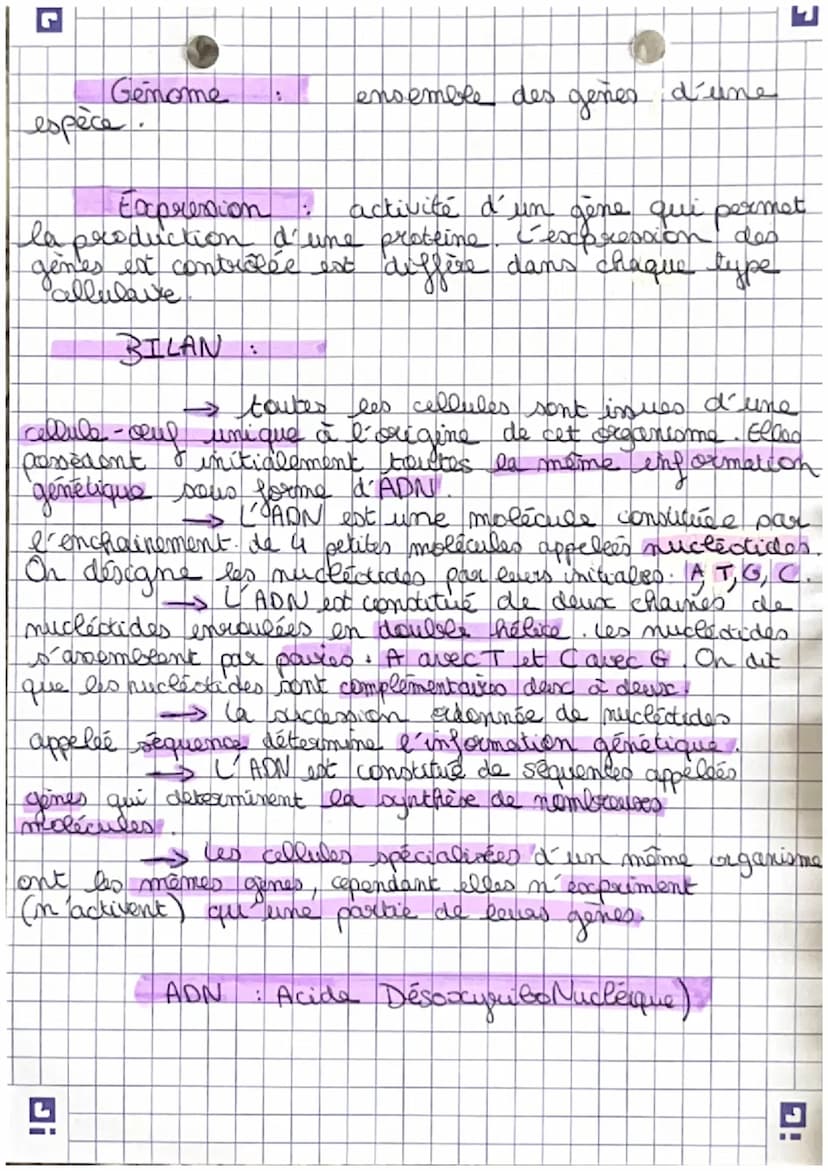 Génome : ensemble des gènes d'une
espèce.
Expression : activité d'un gène qui permet
la production d'une protéine. L'expression des
gènes est contrôlée est diffère dans chaque type
cellulaire.
BILAN :
→ toutes les cellules sont issues d'une
cellule-œuf unique à l'origine de cet organisme. Elles
possèdent initialement toutes la même information
génétique sous forme d'ADN.
→ L'ADN est une molécule constituée par
l'enchainement de 4 petites molécules appelées nucléotides.
On désigne les nucléotides par leurs initiales. A, T, G, C.
→ L'ADN est constitué de deux chaines de
nucléotides enroulées en double hélice. Les nucléotides
s'assemblent par paires. A avec T et C avec G. On dit
que les nucléotides sont complémentaires deux à deux.
→ La succession ordonnée de nucléotides
appelée séquence détermine l'information génétique.
→ L'ADN est constitué de séquences appelées
gènes qui déterminent la synthèse de nombreuses
molécules.
→ Les cellules spécialisées d'un même organisme
ont les mêmes gènes, cependant elles n'expriment
(n'activent) qu'une partie de leurs gènes.
ADN : Acide DésoxyriboNucléique)